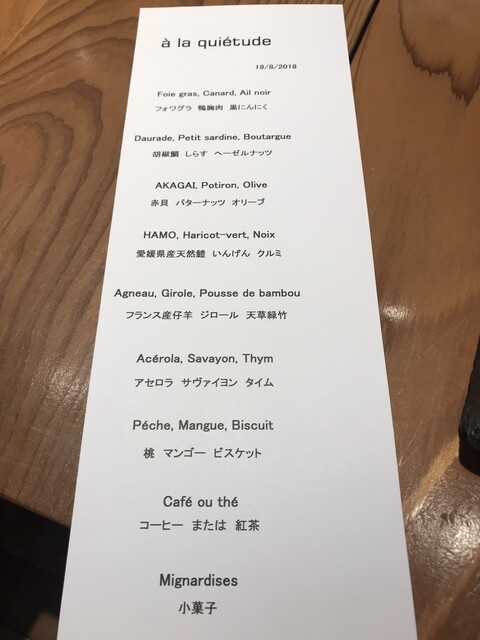 à la quiétude
19/8/2018
Foie gras, Canard, Ail noir
フォワグラ 鴨胸肉 黒にんにく
Daurade, Petit sardine, Boutargue
胡椒鯛 しらす ヘーゼルナッツ
AKAGAI, Potiron, Olive
赤貝 バターナッツ オリーブ
HAMO, Haricot-vert, Noix
愛媛県産天然鱧 いんげん クルミ
Agneau, Girole, Pousse de bambou
フランス産仔羊 ジロール 天草緑竹
Acérola, Savayon, Thym
アセロラ サヴァイヨン タイム
Péche, Mangue, Biscuit
桃 マンゴー ビスケット
Café ou thé
コーヒー または 紅茶
Mignardises
小菓子